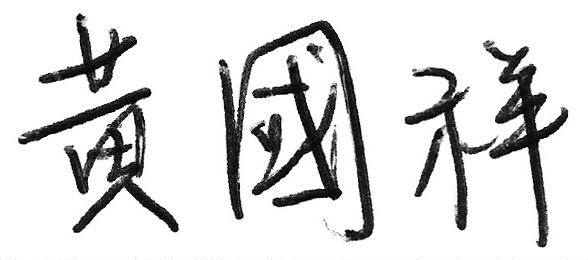 黃國祥